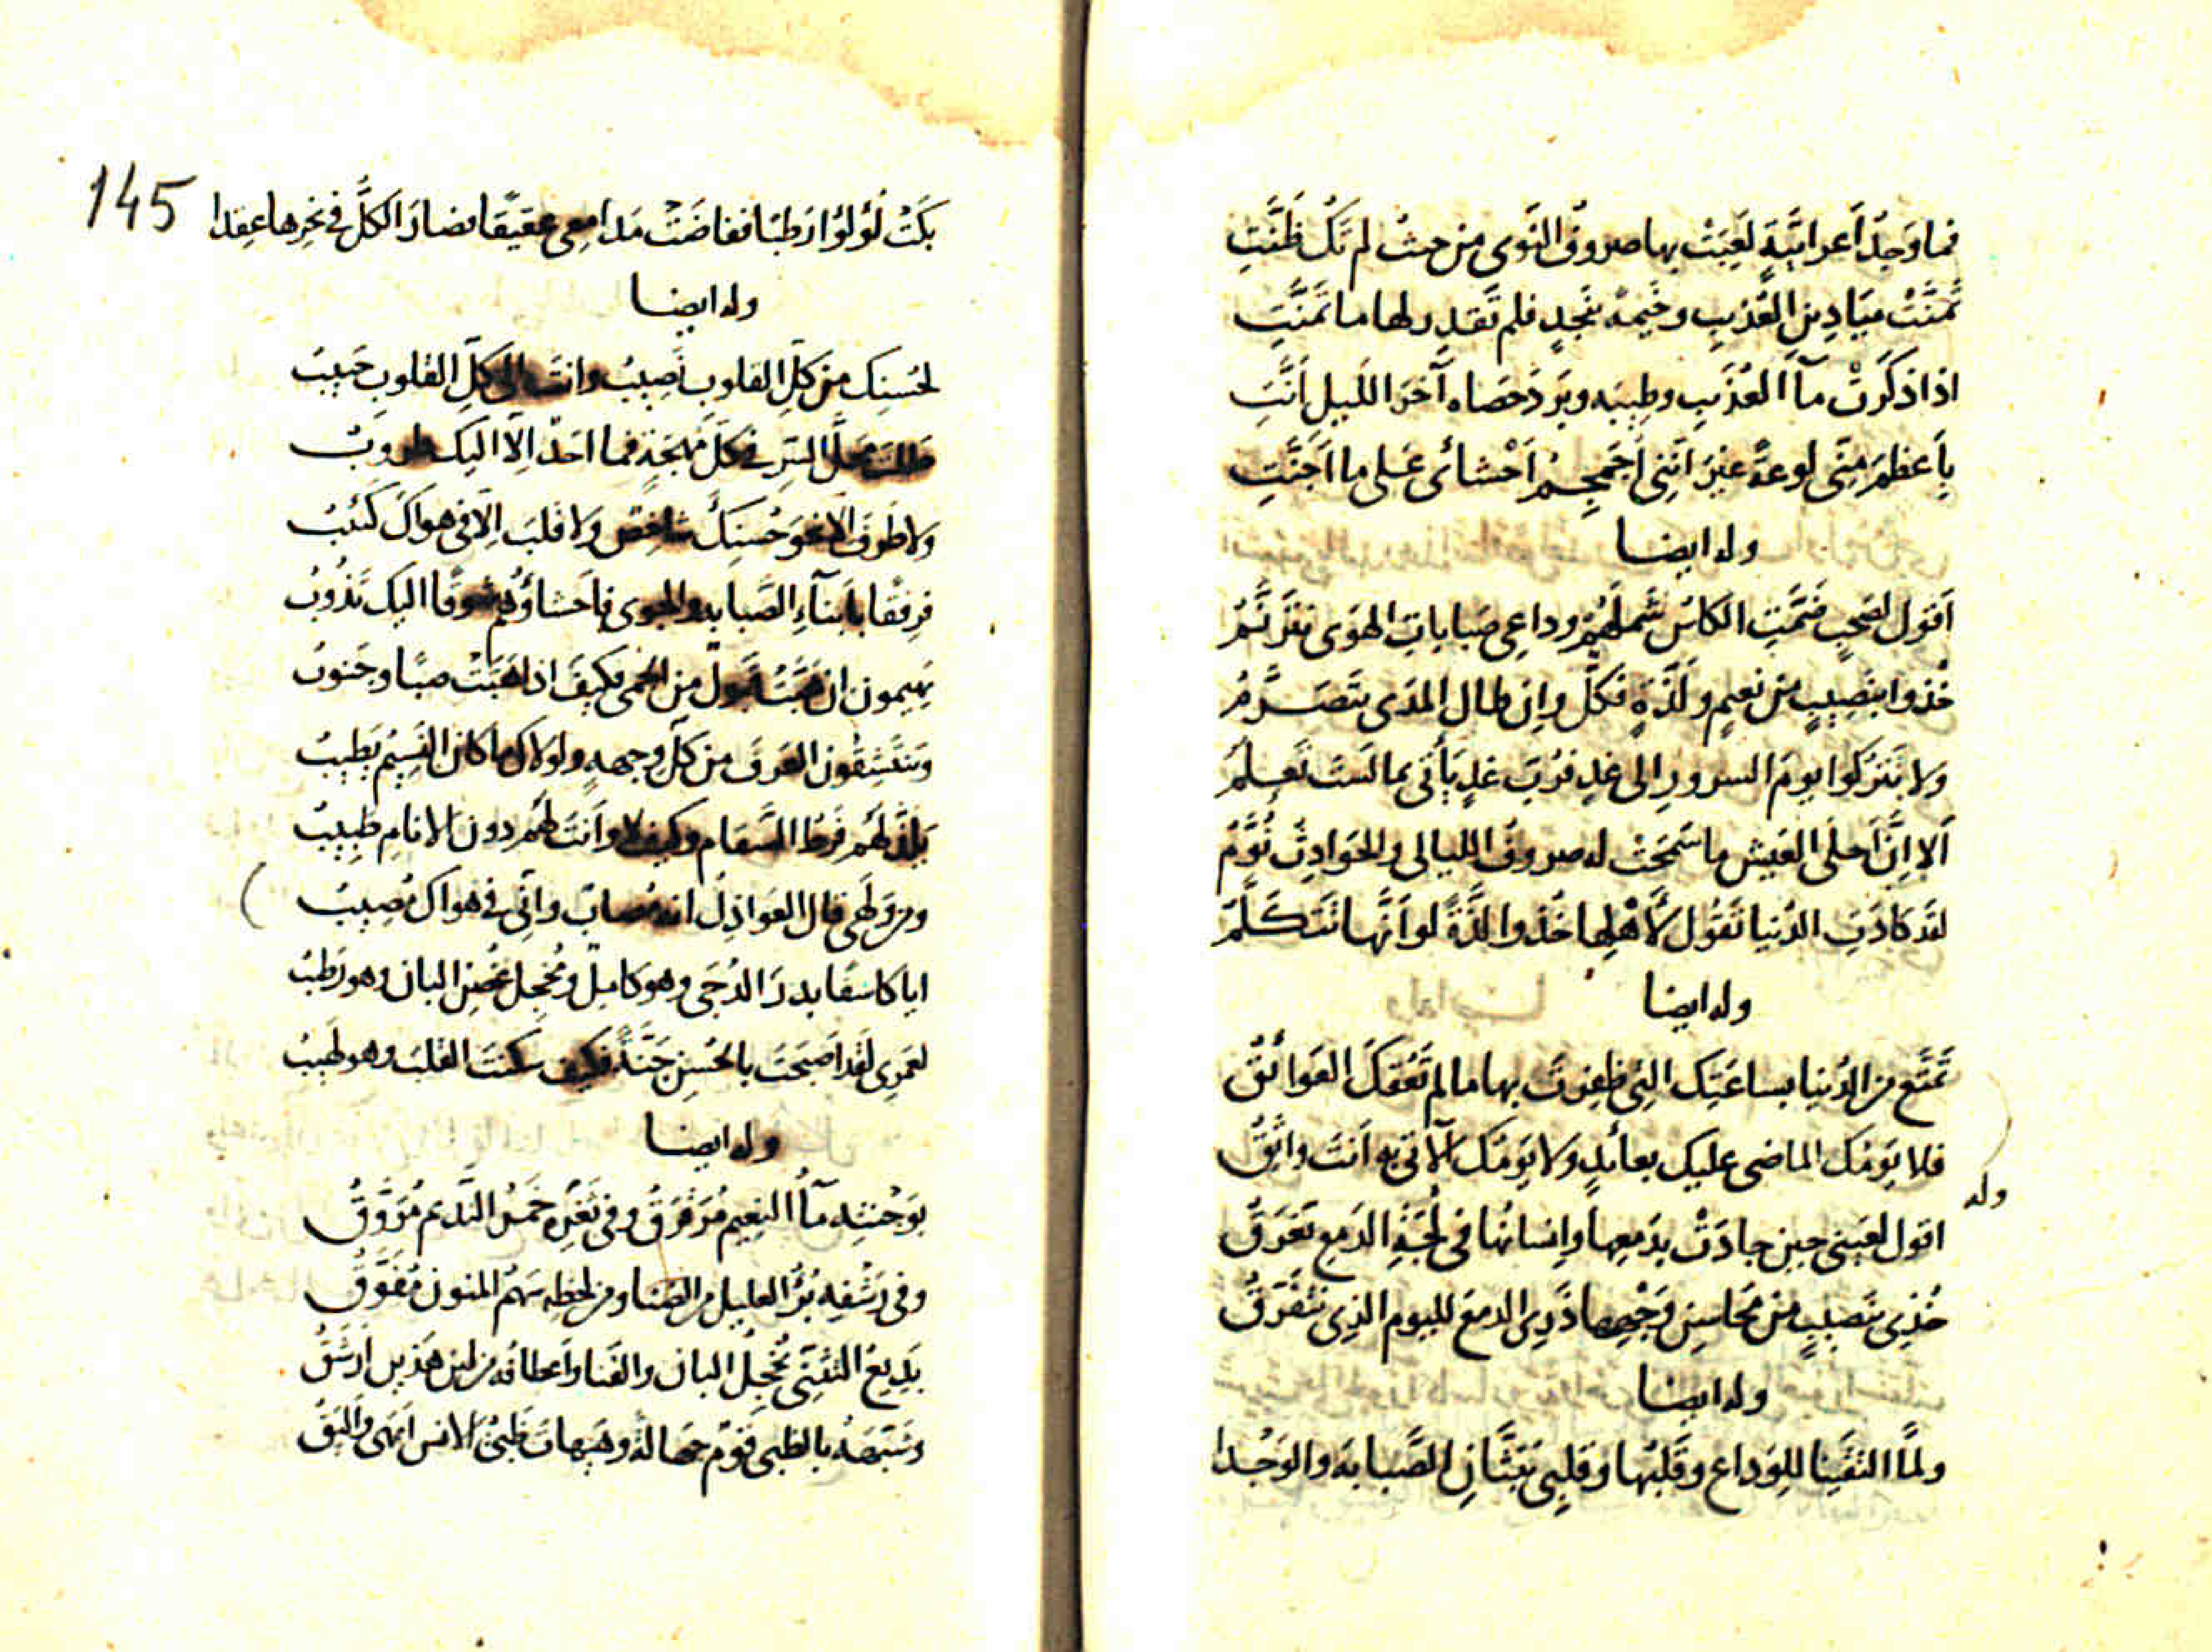 فما وَجدُ اَعرابيّةٍ لَعِبَتْ بها صروفُ النَّوى من حيثُ لم تَكُ ظَنَّتِ
تَمنَّتْ مَيَادِينَ العُذيبِ وخَيمةً بنجدٍ فلم تُقدر لها ما تَمنَّتِ
اذا ذكَرَتْ مآءَ العُذَيبِ وطِيبَه وبَردَ حَصَاه آخرَ اللّيلِ اَنَّتِ
باَعظمَ منّى لوعةً غيرَ اَنّنِى اُجَمجِمُ اَحْشائى عَلى ما اَجَنَّتِ
وله ايضا
اَقولُ لصَحبٍ ضَمَّتِ الكاسُ شَملَهُمْ وداعِى صَباباتِ الهَوى يترَنَّمُ
خُذوا بنَصِيبٍ من نعيمٍ ولَذَّةٍ فكلٌّ وإن طال المدَى يتَصَرَّمُ
ولا تَتركوا يومَ السرورِ الى غدٍ فرُبَ غدٍ يَأتى بما لستَ تعلمُ
اَلا اِنَّ اَحلَى العَيشِ ما سَمَحَتْ له صروفُ الليالى والحَوادِثُ نُوَّمُ
لقد كادَتِ الدُنيا تَقُولُ لاَهلِها خُذوا لذَّةً لو اَنَّها تتَكلَّمُ
وله ايضا
تَمتَّع من الدُنيا بساعَتِك التِى ظفِرتَ بها ما لم تَعُقكَ العَوائقُ
فلا يَومُك الماضى عليك بعائدٍ ولا يَومُك الآتى به اَنتَ واثِقُ
وله
اقول لعَينى حينَ جادَتْ بدَمعِها واِنسانُها فى لُجَّةِ الدَمعِ تَغرَقُ
خُذِى بنَصيبٍ من مَحاسِنِ وَجْهِها ذَرِى الدمعَ لليوم الذِى نتفَرَّقُ
وله ايضا
ولمَّا التقَينا للوَداع وقَلبُها وقلبِى يَبُثَّانِ الصَّبابةَ والوَجْدا
145
بكَتْ لُؤلؤاً رَطبًا ففاضَتْ مَدامعِى عقيقًا فصارَ الكلُّ فى نحرِها عِقدا
وله ايضا
لحُسنِك من كلِّ القلوبِ نَصِيبُ وانتَ الى كلِّ القلوبِ حَبيبُ
محلَّ السّرِ فى كلّ مُهجَةٍ فما احدٌ اِلّا اليك طروبُ
ولا طَرفَ الا نحوَ حُسنِكَ شاخِصٌ ولا قلبَ اِلّا فى هواكَ كئيبُ
فرِفقًا باَبنآءِ الصَّبابةِ والجوى فاَحشاؤُهُم شوقًا اليك تَذُوبُ
يَهيمون ان هَبَّتْ قبولٌ من الحمى فكيفَ اذا هَبَّتْ صبًا وجَنوبُ
ويَنتَشِقون العَرفَ من كلِّ وجهةٍ ولولاك ما كان النسِيمُ يَطيبُ
يَلذُّ لهُم فَرطُ السَّقام وكيف لا وأنتَ لهُم دون الانامِ طبِيبُ
ومن وَلَهى قال العَواذِلُ انه مُصابٌ وانّى فى هواك مُصِيبُ
ايا كاسفًا بدرَ الدُجَى وهو كامِلٌ ومُخجِلَ غُصنِ البان وهو رَطيبُ
لعمرِى لقد اَصبَحتَ بالحُسنِ جَنَّةً فكيف سكنتَ القلبَ وهو لَهيبُ
وله ايضا
بوَجْنتِه مآءُ النعِيمِ مُرَقرَقُ وفى ثَغرِه خَمرُ النَديمِ مُرَوَّقُ
وفى رَشْفِه بُرءُ العليلِ من الضنا ومن لحظِه سَهمُ المنون مُفَوَّقُ
بَديعُ التثنِّى تُخجِلُ البانَ والقنا واَعطافُه من لينِ هذينِ اَرشَقُ
وشبّهَهُ بالظبى قَومٌ جهالةً وهيهات ظبىُ الانس اَبهَى واَليَقُ